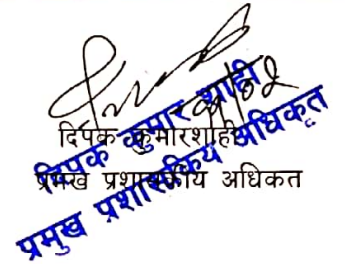 दिपक कुमार शाही
प्रमुख प्रशासकिय अधिकृत
दिपक कुमार शाही
प्रमुख प्रशासकीय अधिकृत